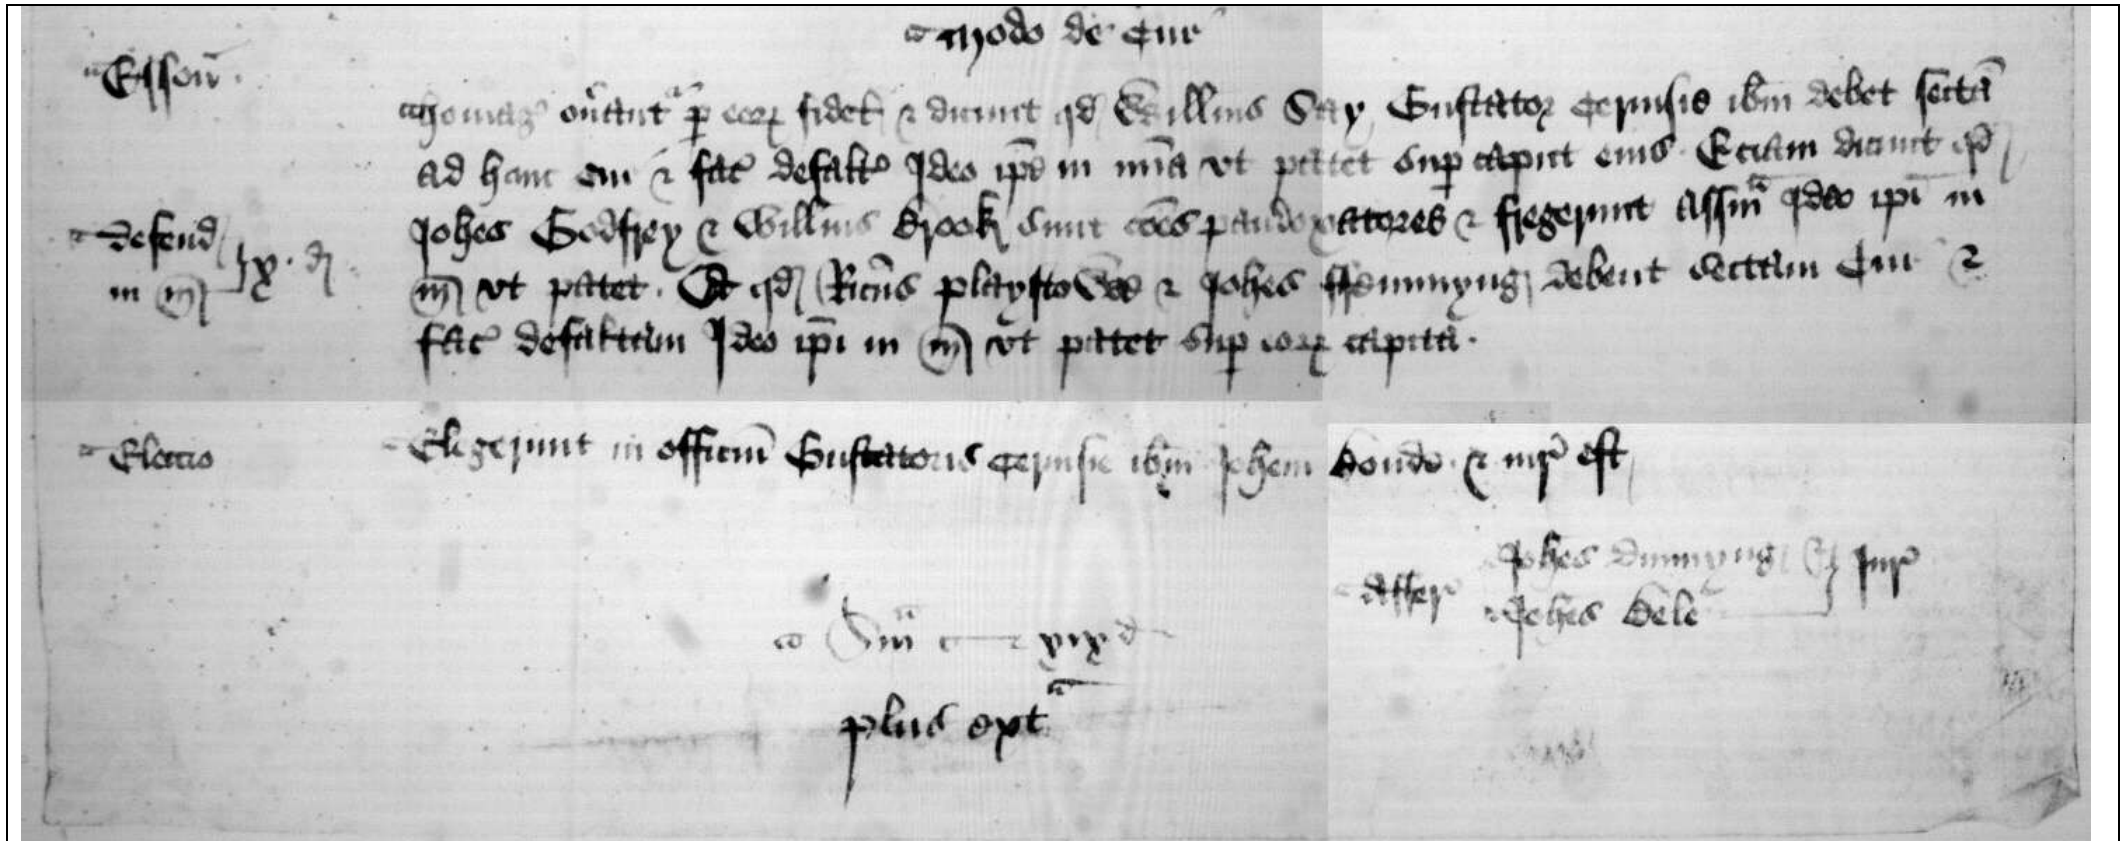 modo de Cur
Esson
homag on̄ant p eor fidel & dicunt qd Willms Say Gustator Ceruisie ibm debet sectā
ad hanc Cur & fac defalt Ideo ipe in mīa vt patet sup caput eius Eciam dicunt qd
defend Johes Godfrey & Willms Brook sunt cōes pandoxatores & fregerunt Assīa Ideo ipi in
in m x d m vt patet. Et qd Ricūs playstowe & Johes Dunnyng debent sectam Cur &
fac defaltam Ideo ipi in m vt patet sup eor capita.
Eleccio Elegerunt in officiū Gustatoris Ceruisie ibm Johem & iur est
Affer Johes Dunnyng Jur
Johes Bele
Sma xix d
plus ext